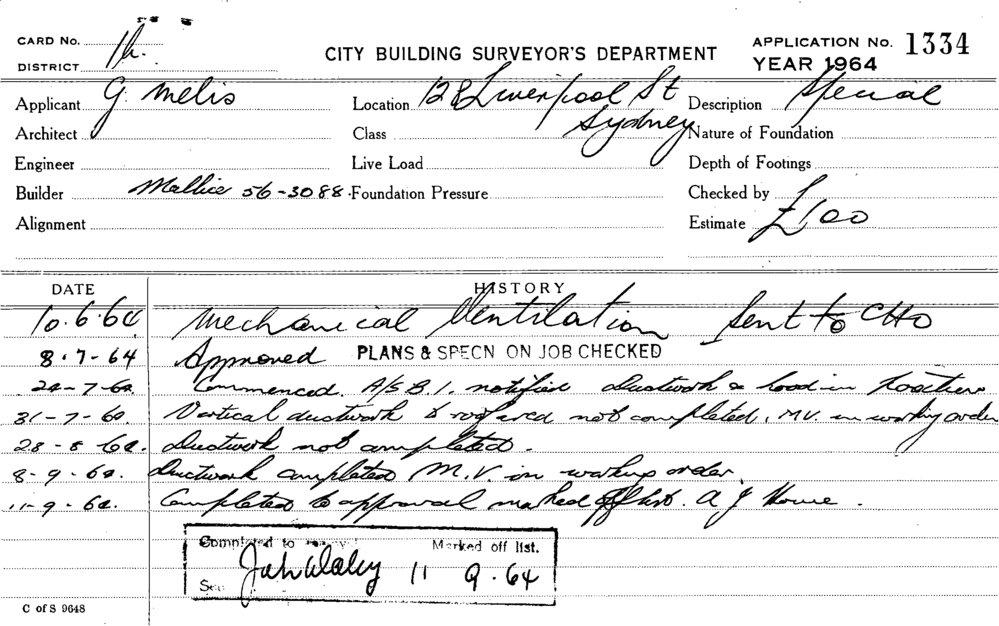 CARD No. 1h. CITY BUILDING SURVEYOR'S DEPARTMENT APPLICATION No. 1334
DISTRICT YEAR 1964
Applicant G Melis Location 128 Liverpool St Description Special
Architect Class Sydney Nature of Foundation
Engineer Live Load Depth of Footings
Builder 56-3088 Foundation Pressure Checked by
Alignment Estimate £100
DATE HISTORY
10.6.64 Mechanical Ventilation Sent to CHO
8-7-64 Approved PLANS & SPECN ON JOB CHECKED
24-7-64. Commenced. A/S.B.I. notified ductwork & hood in position
31-7-64. Vertical ductwork & not completed. M.V. in working order
28-8-64. Ductwork not completed.
8-9-64. Ductwork completed M.V. in working order.
11-9-64. Completed to approval marked off list. A J Howe.
Completed to Marked off list.
John Daley 11 9.64
C of S 9648